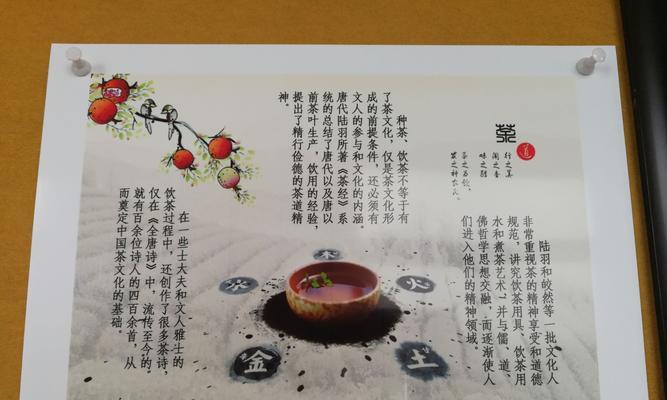 茶
道
种茶、饮茶不等于有
了茶文化，仅是茶文化形
成的前提条件，还必须有
文人的参与和文化的内涵。
唐代陆羽所著《茶经》系
统的总结了唐代以及唐以
前茶叶生产，饮用的经验，
提出了精行俭德的茶道精
神。
陆羽和皎然等一批文化人
非常重视茶的精神享受和道德
规范，讲究饮茶用具、饮茶用
水和煮茶艺术，并与儒、道、
佛哲学思想交融，而逐渐使人
们进入他们的精神领域。
在一些士大夫和文人雅士的
饮茶过程中，还创作了很多茶诗，
仅在《全唐诗》中，流传至今的，
就有百余位诗人的四百余首，从
而奠定中国茶文化的基础。
木
水
火
金
土